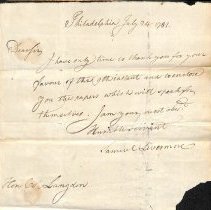 Philadelphia July 24 1781.
Dear Sir
I have only time to thank you for your
favour of the 9th instant and to enclose
you the papers which will speak for
themselves. I am your most obed.
Humble servant
Samuel Livermore
Hon. Langdon